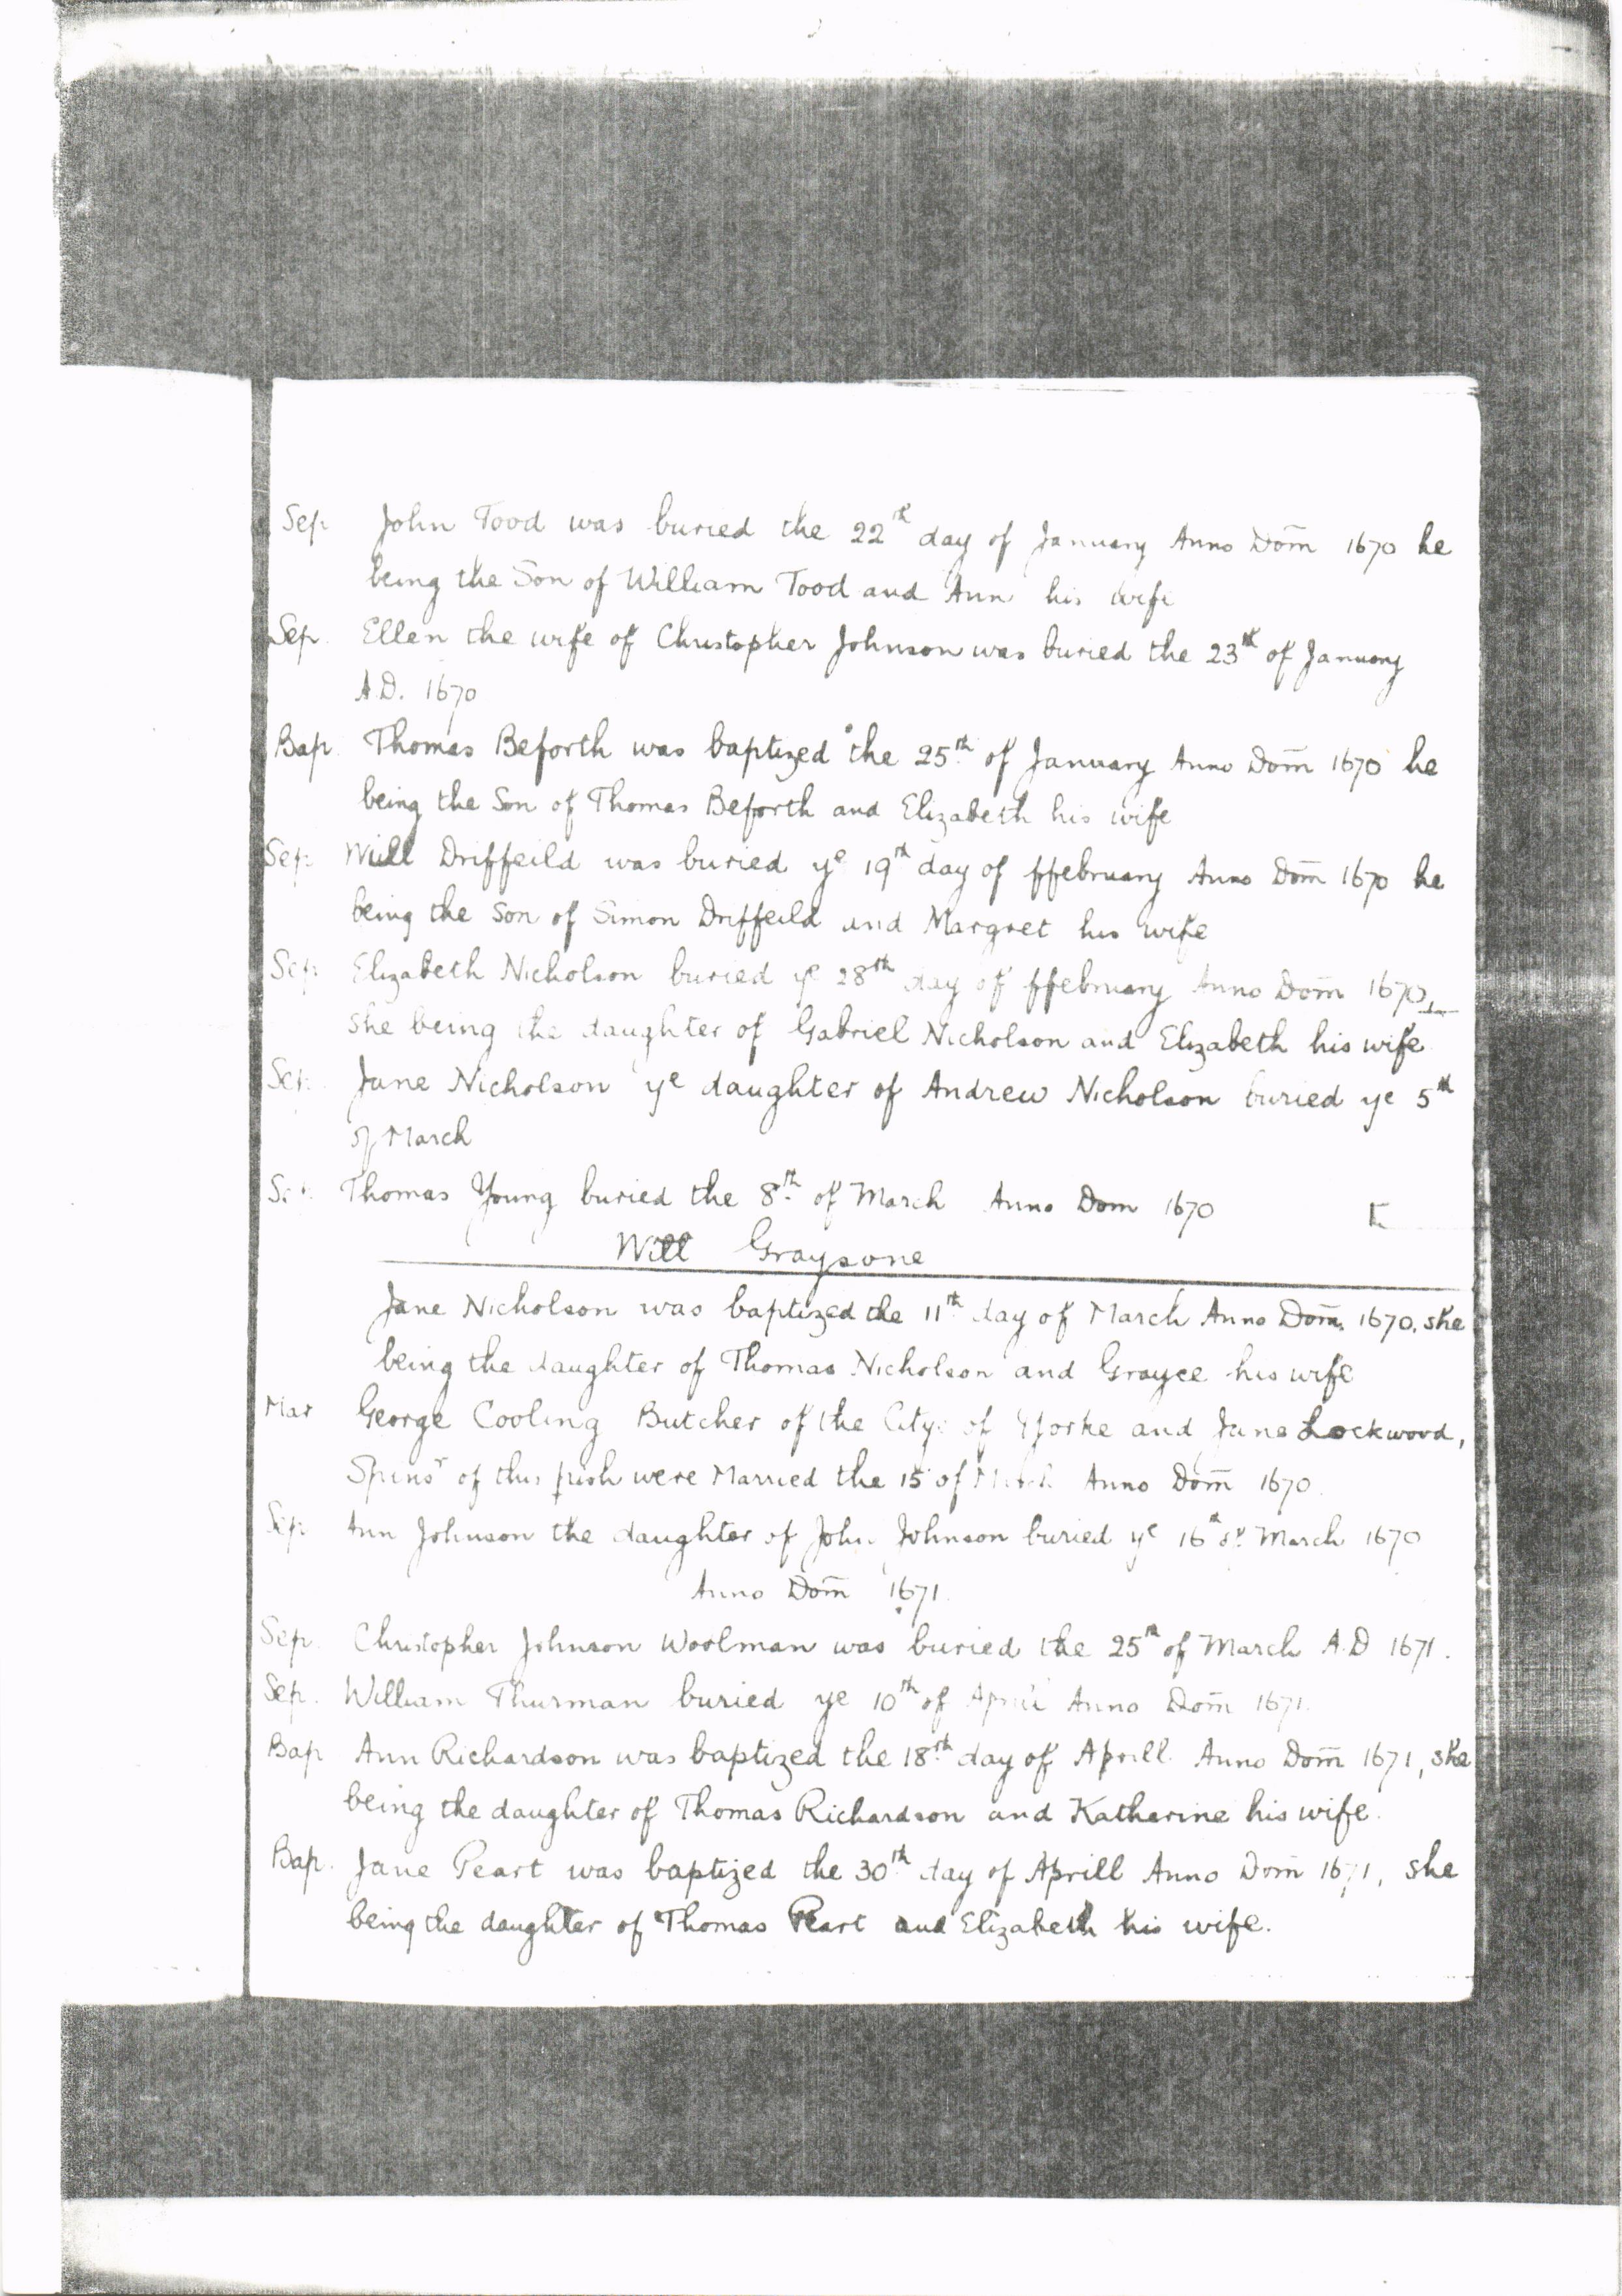 Sep. John Tood was buried the 22th day of January Anno Dom̄ 1670 he
being the Son of William Tood and Ann his wife
Sep. Ellen the wife of Christopher Johnson was buried the 23th of January
A.D. 1670
Bap. Thomas Beforth was baptized the 25th of January Anno Dom̄ 1670 he
being the Son of Thomas Beforth and Elizabeth his wife
Sep. Will Driffeild was buried ye 19th day of ffebruary Anno Dom̄ 1670 he
being the Son of Simon Driffeild and Margret his wife
Sep. Elizabeth Nicholson buried ye 28th day of ffebruary Anno Dom̄ 1670,
she being the daughter of Gabriel Nicholson and Elizabeth his wife
Sep. Jane Nicholson ye daughter of Andrew Nicholson buried ye 5th
of March
Sep. Thomas Young buried the 8th of March Anno Dom 1670
Will Graysone
Jane Nicholson was baptized the 11th day of March Anno Dom̄. 1670, she
being the daughter of Thomas Nicholson and Grayce his wife
Mar George Cooling Butcher of the City of Yorke and Jane Lockwood,
Spinsr of this pish were Married the 15 of March Anno Dom̄ 1670.
Sep. Ann Johnson the daughter of John Johnson buried ye 16th of March 1670
Anno Dom̄ 1671.
Sep. Christopher Johnson Woolman was buried the 25th of March A.D 1671.
Sep. William Thurman buried ye 10th of Aprill Anno Dom̄ 1671.
Bap. Ann Richardson was baptized the 18th day of Aprill Anno Dom̄ 1671, she
being the daughter of Thomas Richardson and Katharine his wife.
Bap. Jane Peart was baptized the 30th day of Aprill Anno Dom̄ 1671, she
being the daughter of Thomas Peart and Elizabeth his wife.